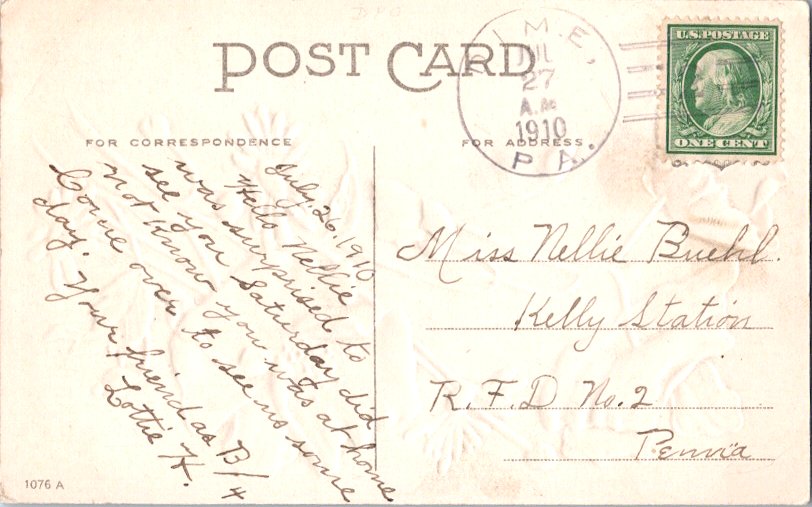 POST CARD
FOR CORRESPONDENCE
FOR ADDRESS
IME,
JUL
27
A.M.
1910
PA.
U.S. POSTAGE
ONE CENT
July, 26, 1910
Hello Nellie
was surprised to
see you Saturday did
not know you was at home
Come over to see us some
day. Your friend as B/4
Lottie H.
Miss Nellie Buehl.
Kelly Station
R.F.D No. 2
Penn'a
1076 A